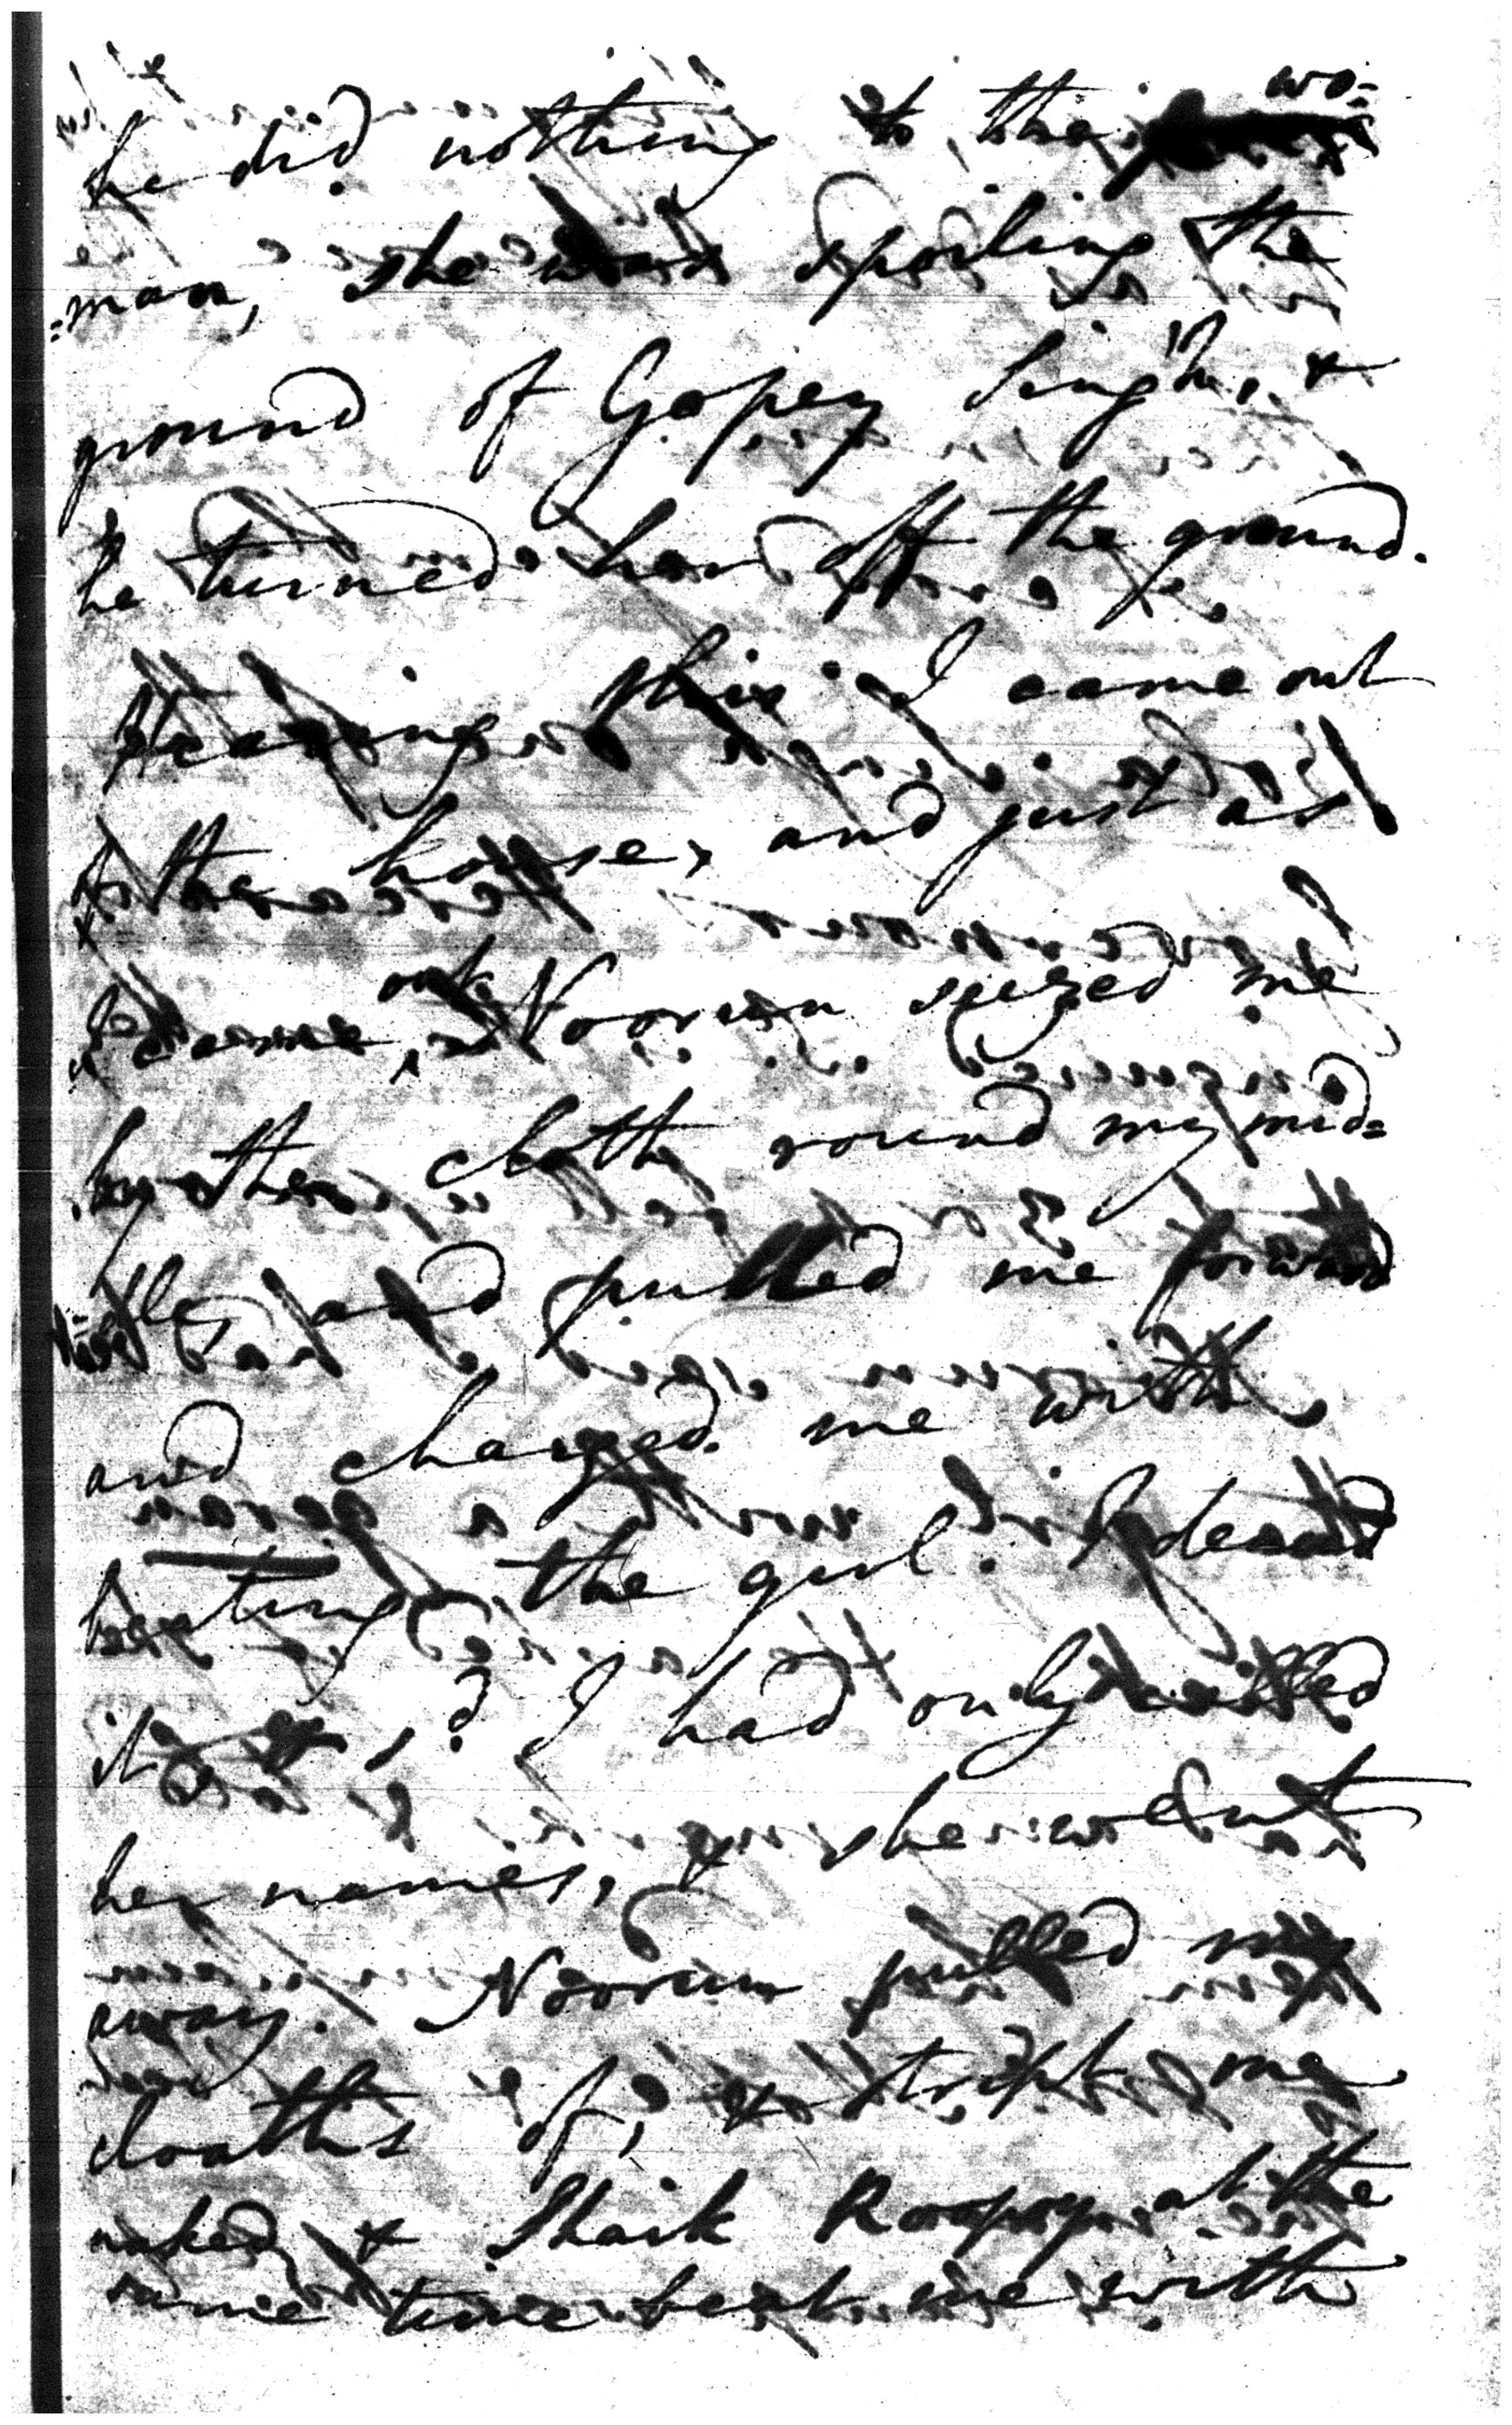 he did nothing to the wo=
=man, she was spoiling the
ground of Gopey Singh, &
he turned her off the ground.
Hearing this I came out
of the house, and just as
I came out, Noorun seized me
by the cloth round my mid=
=dle, and pulled me forward
and charged me with
beating the girl. I denied
it & sd. I had only called
her names, & she went
away. Noorun pulled my
cloaths of, & stript me
naked & Shaik Roopy at the
same time beat me with